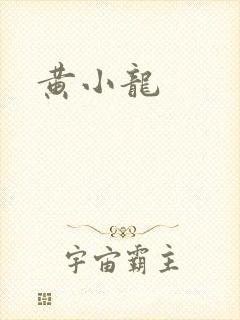 黄小龍
宇宙霸主